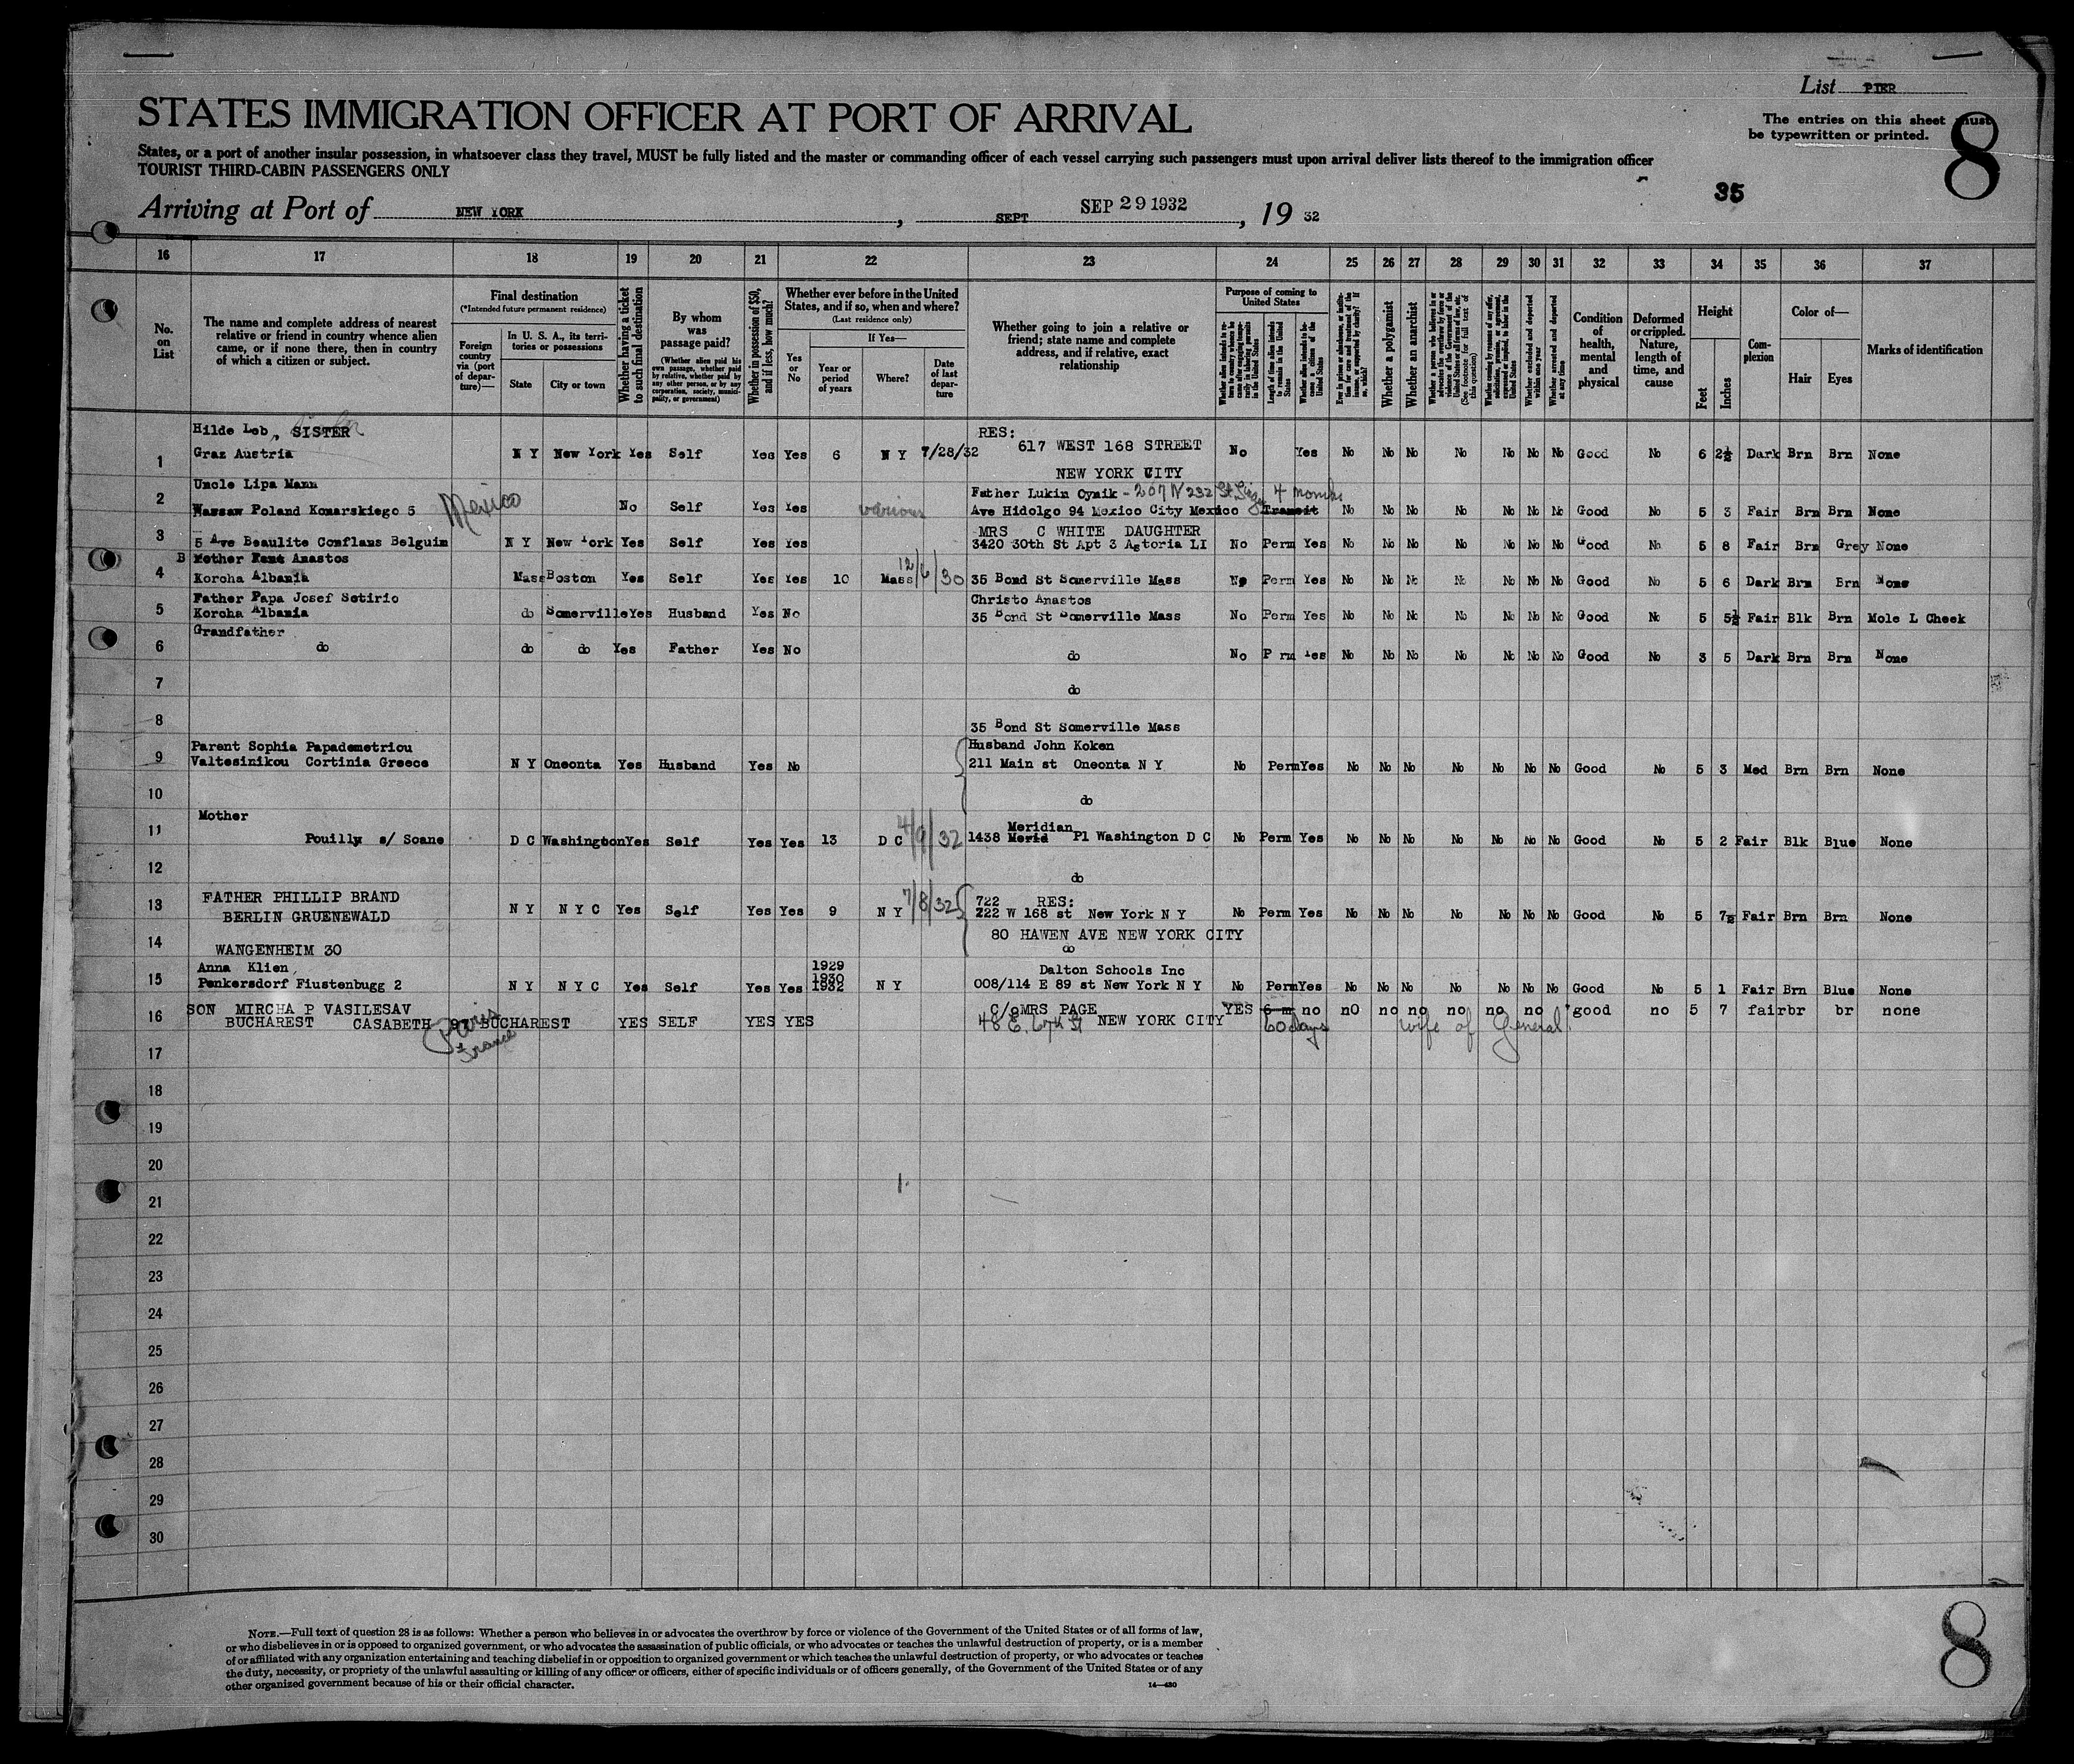 List PIER
The entries on this sheet must
be typewritten or printed.
8
STATES IMMIGRATION OFFICER AT PORT OF ARRIVAL
States, or a port of another insular possession, in whatsoever class they travel, MUST be fully listed and the master or commanding officer of each vessel carrying such passengers must upon arrival deliver lists thereof to the immigration officer
TOURIST THIRD-CABIN PASSENGERS ONLY
35
Arriving at Port of NEW YORK, SEPT SEP 29 1932, 19 32
16 17 18 19 20 21 22 23 24 25 26 27 28 29 30 31 32 33 34 35 36 37
No. on List
The name and complete address of nearest
relative or friend in country whence alien
came, or if none there, then in country
of which a citizen or subject.
Final destination
(*Intended future permanent residence)
Foreign country via (port of departure)—
In U. S. A., its territories or possessions
State
City or town
Whether having a ticket to such final destination
By whom was passage paid?
(Whether alien paid his own passage, whether paid by relative, whether paid by any other person, or by any corporation, society, municipality, or government)
Whether in possession of $50, and if less, how much?
Whether ever before in the United States, and if so, when and where?
(Last residence only)
Yes or No
If Yes—
Year or period of years
Where?
Date of last departure
Whether going to join a relative or
friend; state name and complete
address, and if relative, exact
relationship
Purpose of coming to United States
Length of time alien intends to remain in the United States
Whether a polygamist
Whether an anarchist
(See footnote for full text of this question)
Whether arrested and deported at any time
Condition of health, mental and physical
Deformed or crippled. Nature, length of time, and cause
Height
Feet
Inches
Complexion
Color of—
Hair
Eyes
Marks of identification
Hilde Lob, SISTER RES:
1 Graz Austria N Y New York Yes Self Yes Yes 6 N Y 7/28/32 617 WEST 168 STREET No Yes No No No No No No No Good No 6 2½ Dark Brn Brn None
NEW YORK CITY
Uncle Lipa Mann Father Lukin Cynik - 207 W 232 St 4 months
2 Warsaw Poland Komarskiego 5 Mexico No Self Yes Yes various Ave Hidolgo 94 Mexico City Mexico Transit No No No No No No No Good No 5 3 Fair Brn Brn None
MRS C WHITE DAUGHTER
3 5 Ave Beaulite Conflans Belguim N Y New York Yes Self Yes Yes 3420 30th St Apt 3 Astoria LI No Perm Yes No No No No No No No Good No 5 8 Fair Brn Grey None
B Mother Anastos
4 Korcha Albania Mass Boston Yes Self Yes Yes 10 Mass 12/6/30 35 Bond St Somerville Mass No Perm Yes No No No No No No No Good No 5 6 Dark Brn Brn None
Father Papa Josef Sotirio Christo Anastos
5 Korcha Albania do Somerville Yes Husband Yes No 35 Bond St Somerville Mass No Perm Yes No No No No No No No Good No 5 5½ Fair Blk Brn Mole L Cheek
Grandfather
6 do do do Yes Father Yes No do No P rm Yes No No No No No No No Good No 3 5 Dark Brn Brn None
7 do
8 35 Bond St Somerville Mass
Parent Sophia Papademetriou Husband John Koken
9 Valtesinikou Cortinia Greece N Y Oneonta Yes Husband Yes No 211 Main st Oneonta N Y No Perm Yes No No No No No No No Good No 5 3 Med Brn Brn None
10 do
Mother Meridian
11 Pouilly s/ Soane D C Washington Yes Self Yes Yes 13 D C 4/9/32 1438 Merid Pl Washington D C No Perm Yes No No No No No No No Good No 5 2 Fair Blk Blue None
12 do
FATHER PHILLIP BRAND 722 RES:
13 BERLIN GRUENEWALD N Y N Y C Yes Self Yes Yes 9 N Y 7/8/32 222 W 168 st New York N Y No Perm Yes No No No No No No No Good No 5 7½ Fair Brn Brn None
80 HAWEN AVE NEW YORK CITY
14 WANGENHEIM 30 do
Anna Klien 1929 1930 Dalton Schools Inc
15 Penkersdorf Fiustenbugg 2 N Y N Y C Yes Self Yes Yes 1932 N Y 008/114 E 89 st New York N Y No Perm Yes No No No No No No No Good No 5 1 Fair Brn Blue None
16 SON MIRCHA P VASILESAV C/o MRS PAGE YES 6 m no nO no no no no no no good no 5 7 fair br br none
BUCHAREST CASABETH 97 BUCHAREST YES SELF YES YES 48 E. 67th St NEW YORK CITY 60 days wife of General
Paris
France
17
18
19
20
21
22
23
24
25
26
27
28
29
30
NOTE.—Full text of question 28 is as follows: Whether a person who believes in or advocates the overthrow by force or violence of the Government of the United States or of all forms of law,
or who disbelieves in or is opposed to organized government, or who advocates the assassination of public officials, or who advocates or teaches the unlawful destruction of property, or is a member
of or affiliated with any organization entertaining and teaching disbelief in or opposition to organized government or which teaches the unlawful destruction of property, or who advocates or teaches
the duty, necessity, or propriety of the unlawful assaulting or killing of any officer or officers, either of specific individuals or of officers generally, of the Government of the United States or of any
other organized government because of his or their official character.
14—480
8